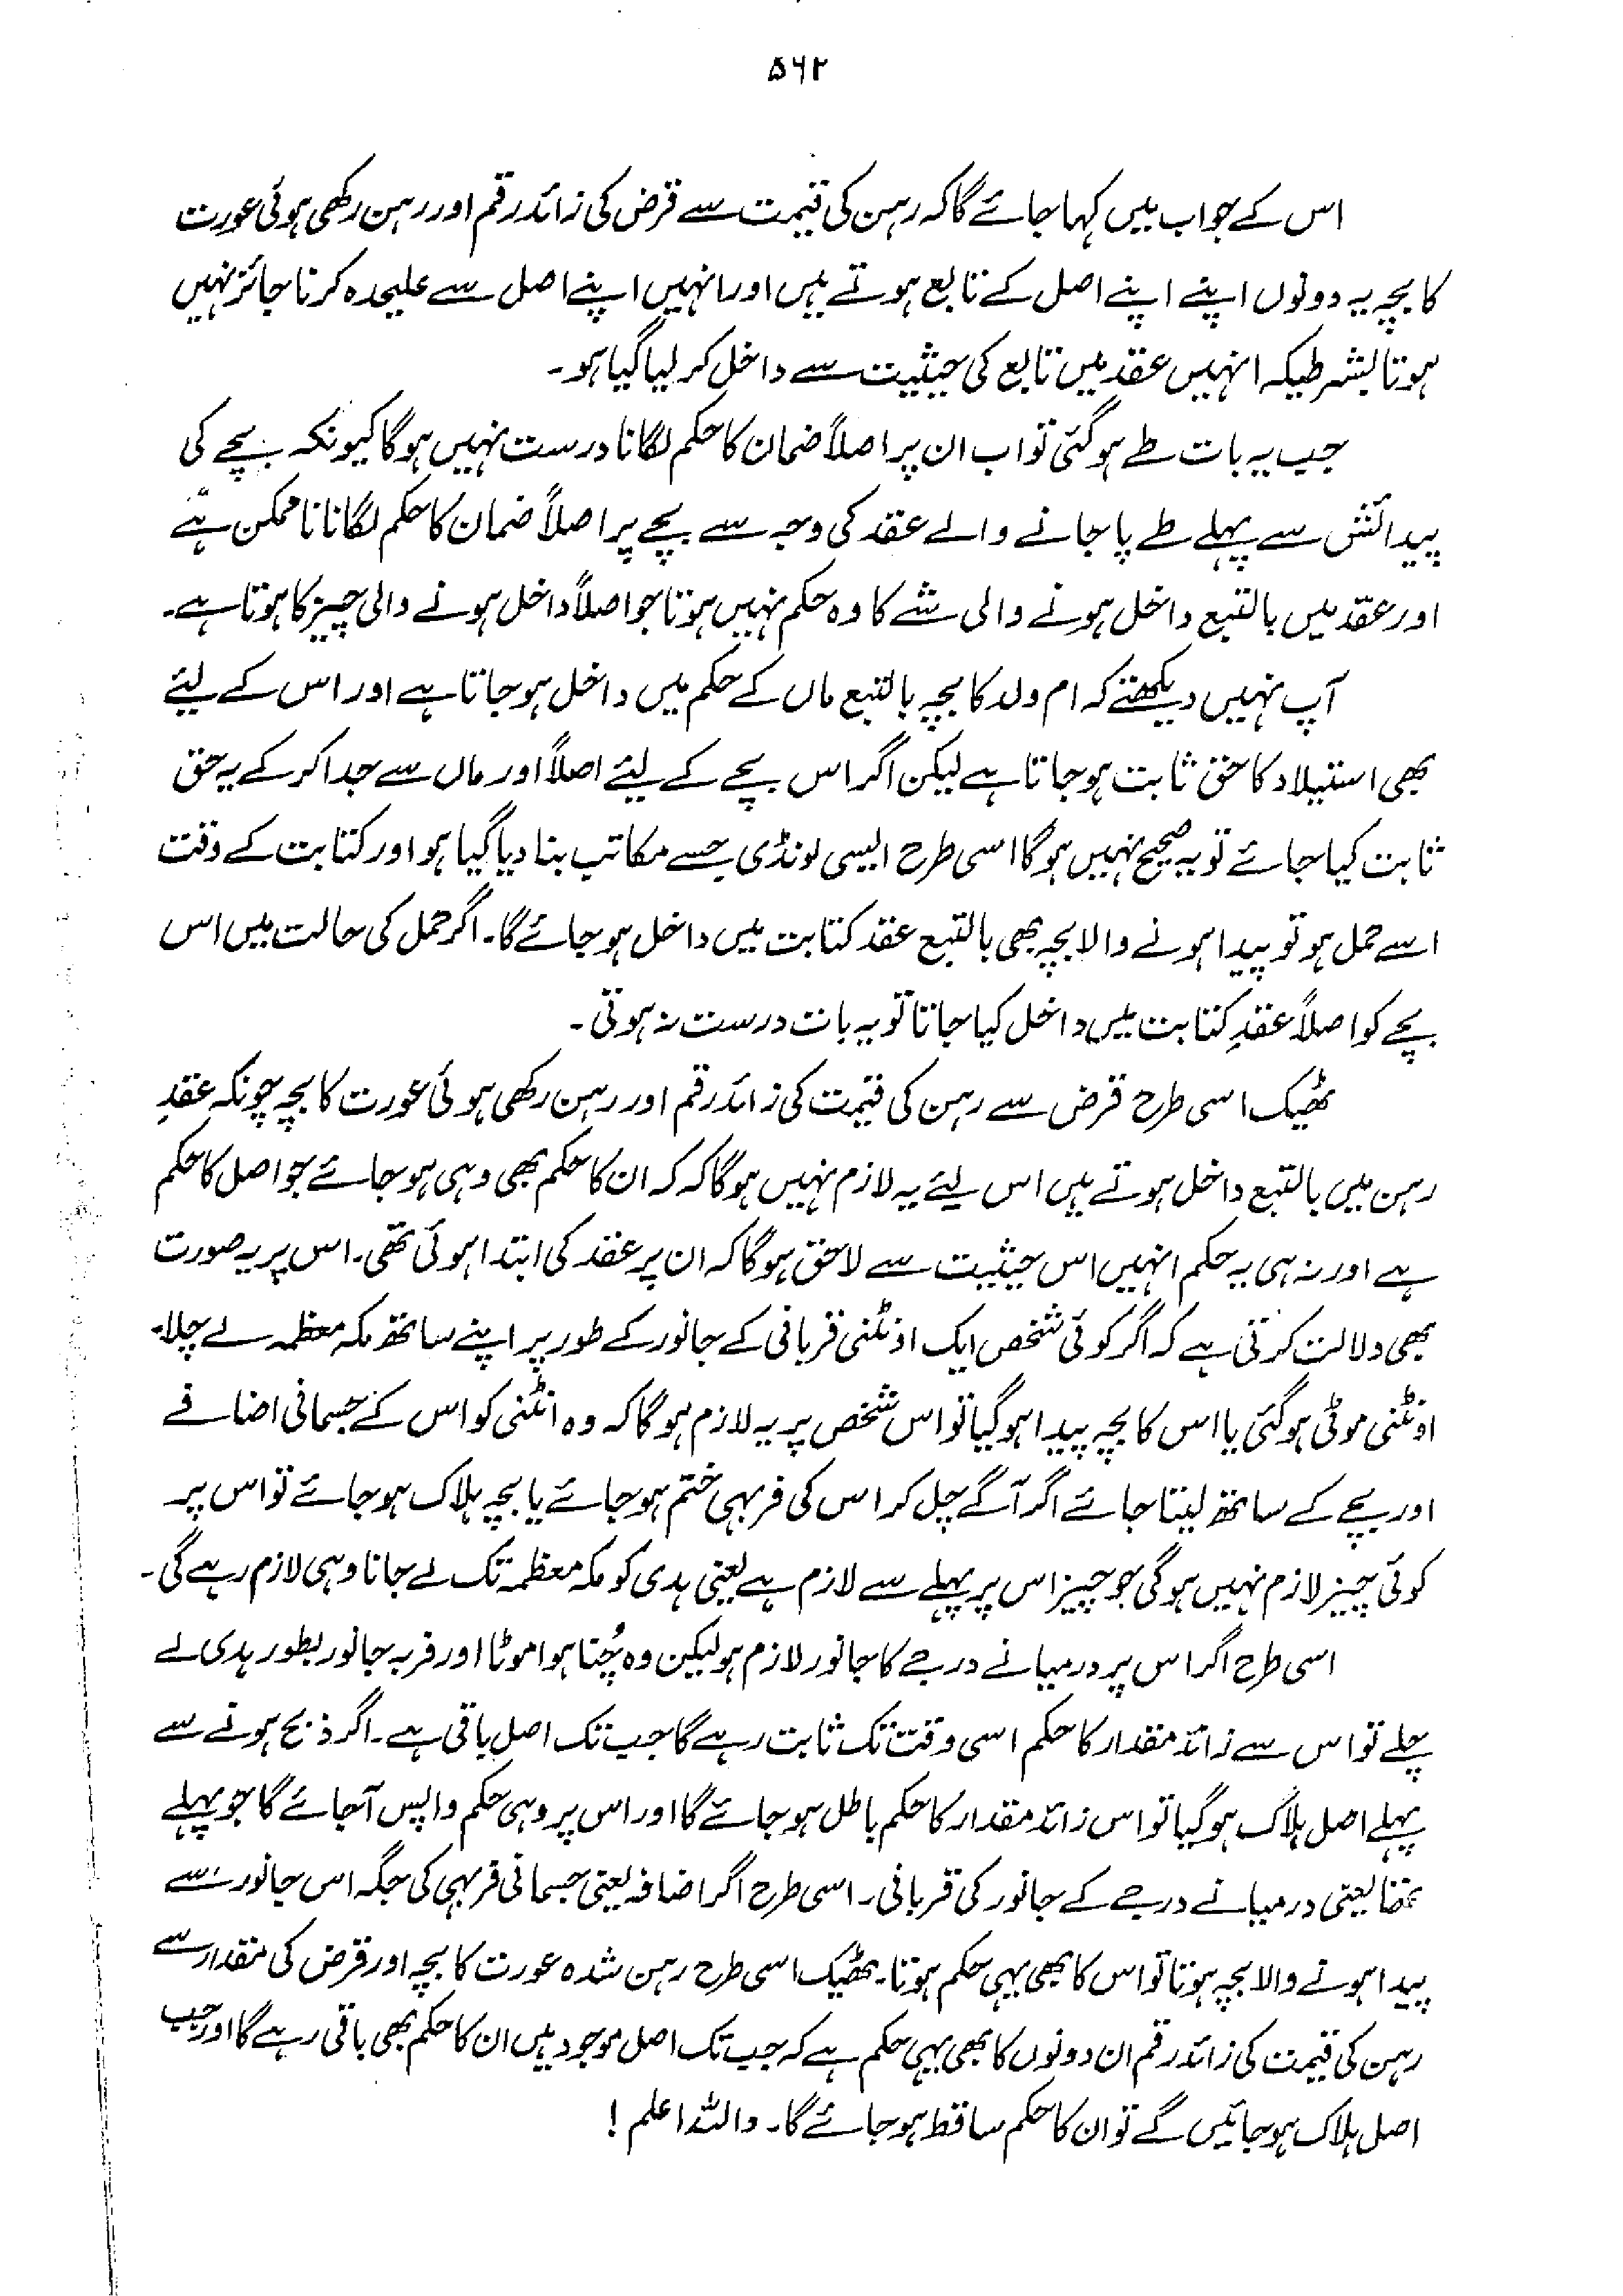 ۵۶۲
اس کے جواب میں کہا جائے گا کہ رہن کی قیمت سے قرض کی زائد رقم اور رہن رکھی ہوئی عورت
کا بچہ یہ دونوں اپنے اپنے اصل کے تابع ہوتے ہیں اور انہیں اپنے اصل سے علیحدہ کرنا جائز نہیں
ہوتا بشرطیکہ انہیں عقد میں تابع کی حیثیت سے داخل کر لیا گیا ہو۔
جب یہ بات طے ہو گئی تو اب ان پر اصلاً ضمان کا حکم لگانا درست نہیں ہو گا کیونکہ بچے کی
پیدائش سے پہلے طے پا جانے والے عقد کی وجہ سے بچے پر اصلاً ضمان کا حکم لگانا ناممکن ہے
اور عقد میں بالتبع داخل ہونے والی شے کا وہ حکم نہیں ہوتا جو اصلاً داخل ہونے والی چیز کا ہوتا ہے۔
آپ نہیں دیکھتے کہ ام ولد کا بچہ بالتبع ماں کے حکم میں داخل ہو جاتا ہے اور اس کے لیئے
بھی استیلاد کا حق ثابت ہو جاتا ہے لیکن اگر اس بچے کے لیئے اصلاً اور ماں سے جدا کر کے یہ حق
ثابت کیا جائے تو یہ صحیح نہیں ہو گا اسی طرح ایسی لونڈی جسے مکاتب بنا دیا گیا ہو اور کتابت کے وقت
اسے حمل ہو تو پیدا ہونے والا بچہ بھی بالتبع عقد کتابت میں داخل ہو جائے گا۔ اگر حمل کی حالت میں اس
بچے کو اصلاً عقدِ کتابت میں داخل کیا جاتا تو یہ بات درست نہ ہوتی۔
ٹھیک اسی طرح قرض سے رہن کی قیمت کی زائد رقم اور رہن رکھی ہوئی عورت کا بچہ چونکہ عقدِ
رہن میں بالتبع داخل ہوتے ہیں اس لیئے یہ لازم نہیں ہو گا کہ کہ ان کا حکم بھی وہی ہو جائے جو اصل کا حکم
ہے اور نہ ہی یہ حکم انہیں اس حیثیت سے لاحق ہو گا کہ ان پر عقد کی ابتدا ہوئی تھی۔ اس پر یہ صورت
بھی دلالت کرتی ہے کہ اگر کوئی شخص ایک اونٹنی قربانی کے جانور کے طور پر اپنے ساتھ مکہ معظمہ لے چلا۔
اونٹنی موٹی ہو گئی یا اس کا بچہ پیدا ہو گیا تو اس شخص پر یہ لازم ہو گا کہ وہ انٹنی کو اس کے جسمانی اضافے
اور بچے کے ساتھ لیتا جائے اگر آگے چل کر اس کی فربہی ختم ہو جائے یا بچہ ہلاک ہو جائے تو اس پر
کوئی چیز لازم نہیں ہو گی جو چیز اس پر پہلے سے لازم ہے یعنی ہدی کو مکہ معظمہ تک لے جانا وہی لازم رہے گی۔
اسی طرح اگر اس پر درمیانے درجے کا جانور لازم ہو لیکن وہ چُنا ہوا موٹا اور فربہ جانور بطور ہدی لے
چلے تو اس سے زائد مقدار کا حکم اسی وقت تک ثابت رہے گا جب تک اصل باقی ہے۔ اگر ذبح ہونے سے
پہلے اصل ہلاک ہو گیا تو اس زائد مقدار کا حکم باطل ہو جائے گا اور اس پر وہی حکم واپس آ جائے گا جو پہلے
تھا یعنی درمیانے درجے کے جانور کی قربانی۔ اسی طرح اگر اضافہ یعنی جسمانی فربہی کی جگہ اس جانور سے
پیدا ہونے والا بچہ ہوتا تو اس کا بھی یہی حکم ہوتا۔ ٹھیک اسی طرح رہن شدہ عورت کا بچہ اور قرض کی مقدار سے
رہن کی قیمت کی زائد رقم ان دونوں کا بھی یہی حکم ہے کہ جب تک اصل موجود ہیں ان کا حکم بھی باقی رہے گا اور جب
اصل ہلاک ہو جائیں گے تو ان کا حکم ساقط ہو جائے گا۔ واللہ اعلم !